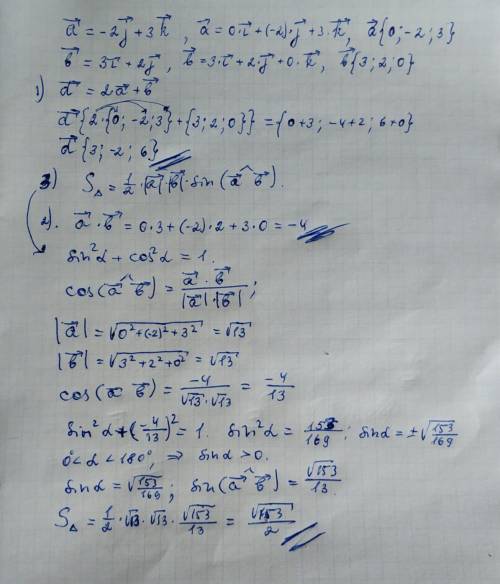 a⃗ = -2j⃗ + 3k⃗ , a⃗ = 0·i⃗ + (-2)·j⃗ + 3·k⃗, a⃗{0; -2; 3}
b⃗ = 3i⃗ + 2j⃗ , b⃗ = 3·i⃗ + 2·j⃗ + 0·k⃗, b⃗{3; 2; 0}
1) d⃗ = 2a⃗ + b⃗
d⃗{2·{0; -2; 3} + {3; 2; 0}} = {0+3; -4+2; 6+0}
d⃗{3; -2; 6}
3) S△ = 1/2 · |a⃗|·|b⃗| · sin(a⃗ ^ b⃗).
2). a⃗ · b⃗ = 0·3 + (-2)·2 + 3·0 = -4
sin²α + cos²α = 1.
cos(a⃗ ^ b⃗) = a⃗ · b⃗ / |a⃗|·|b⃗| ;
|a⃗| = √(0² + (-2)² + 3²) = √13
|b⃗| = √(3² + 2² + 0²) = √13
cos(a⃗ b⃗) = -4/(√13 · √13) = -4/13
sin²α + (-4/13)² = 1. sin²α = 153/169; sinα = ±√(153/169)
0° < α < 180°, ⇒ sinα > 0.
sinα = √(153/169); sin(a⃗ ^ b⃗) = √153/13.
S△ = 1/2 · √13 · √13 · √153/13 = √153/2